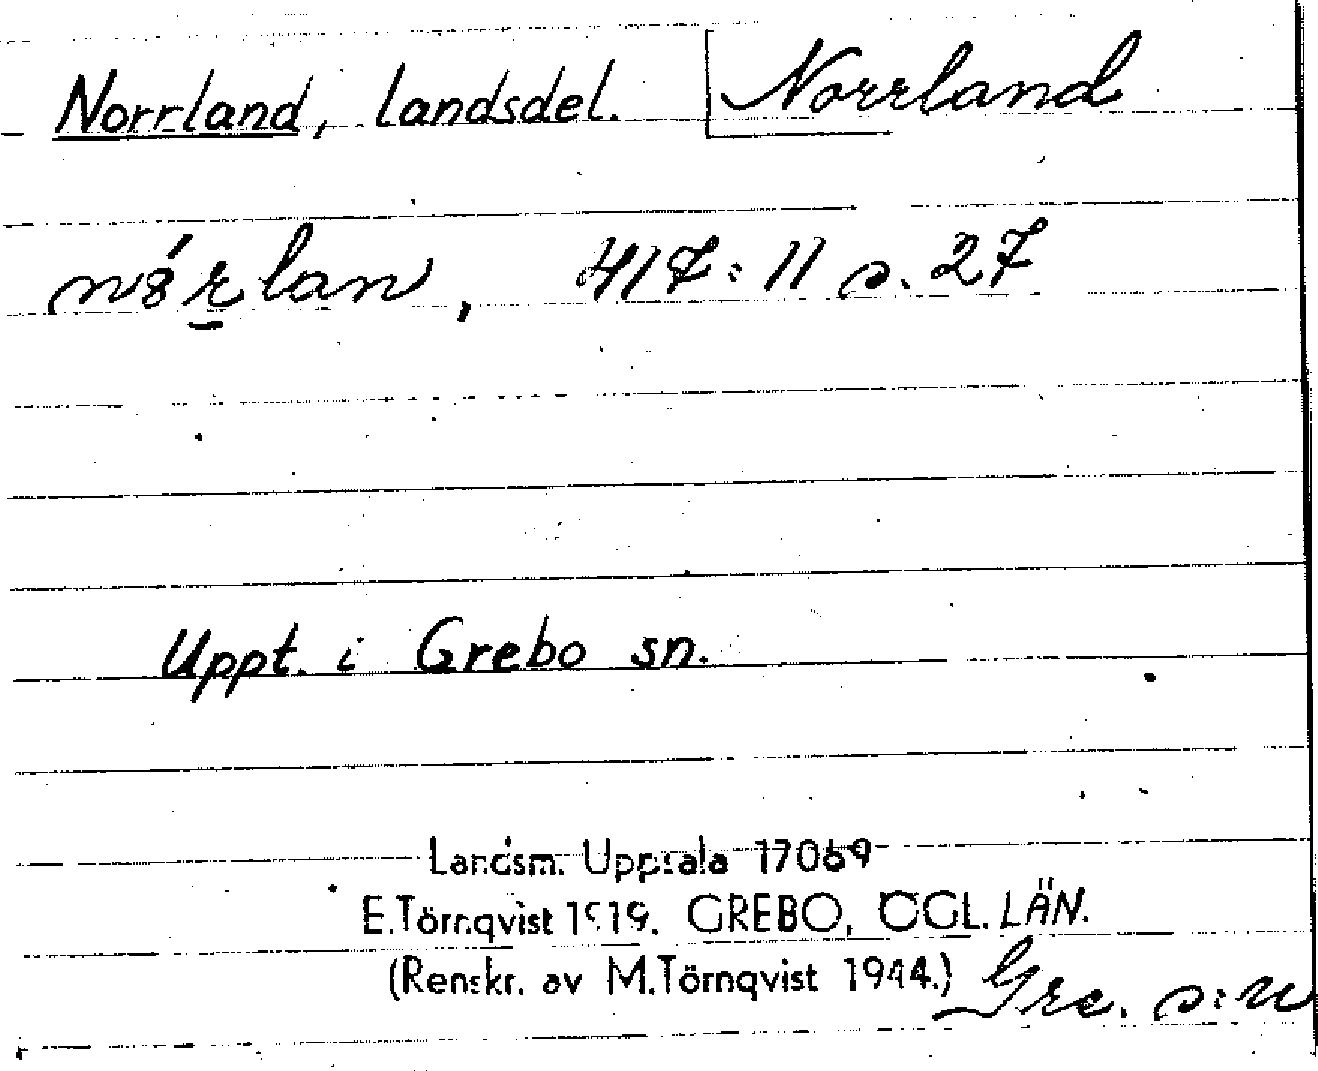 Norrland, landsdel. Norrland
417:11 s. 27
Uppt. i Grebo sn.
Landsm. Uppsala 17069
E.Törnqvist 1919. GREBO, ÖGL. LÄN.
(Renskr. av M.Törnqvist 1944.) Gre. s:n